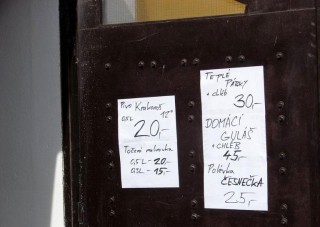 Pivo Krakonoš
0,5L 12°
20,-
Točená malinovka
0,5L - 20,-
0,3L - 15,-
TEPLÉ
PÁRKY
+ chléb
30,-
DOMÁCÍ
GULÁŠ
+ CHLÉB
45,-
Polévka
ČESNEČKA
25,-